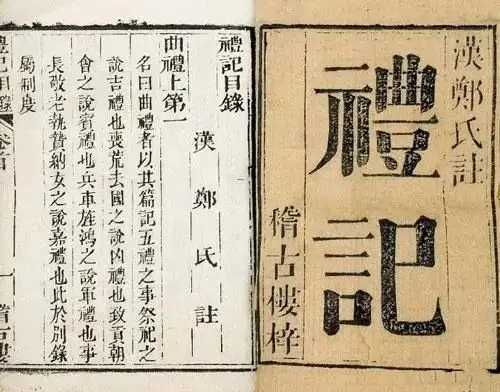 漢鄭氏註
禮記
稽古樓梓
禮記目錄
漢鄭氏註
曲禮上第一
名曰曲禮者以其篇記五禮之事祭祀之
說吉禮也喪荒去國之說凶禮也致貢朝
會之說賓禮也兵車旌鴻之說軍禮也事
長敬老執贄納女之說嘉禮也此於別錄
屬制度
禮記目錄
一
稽古樓